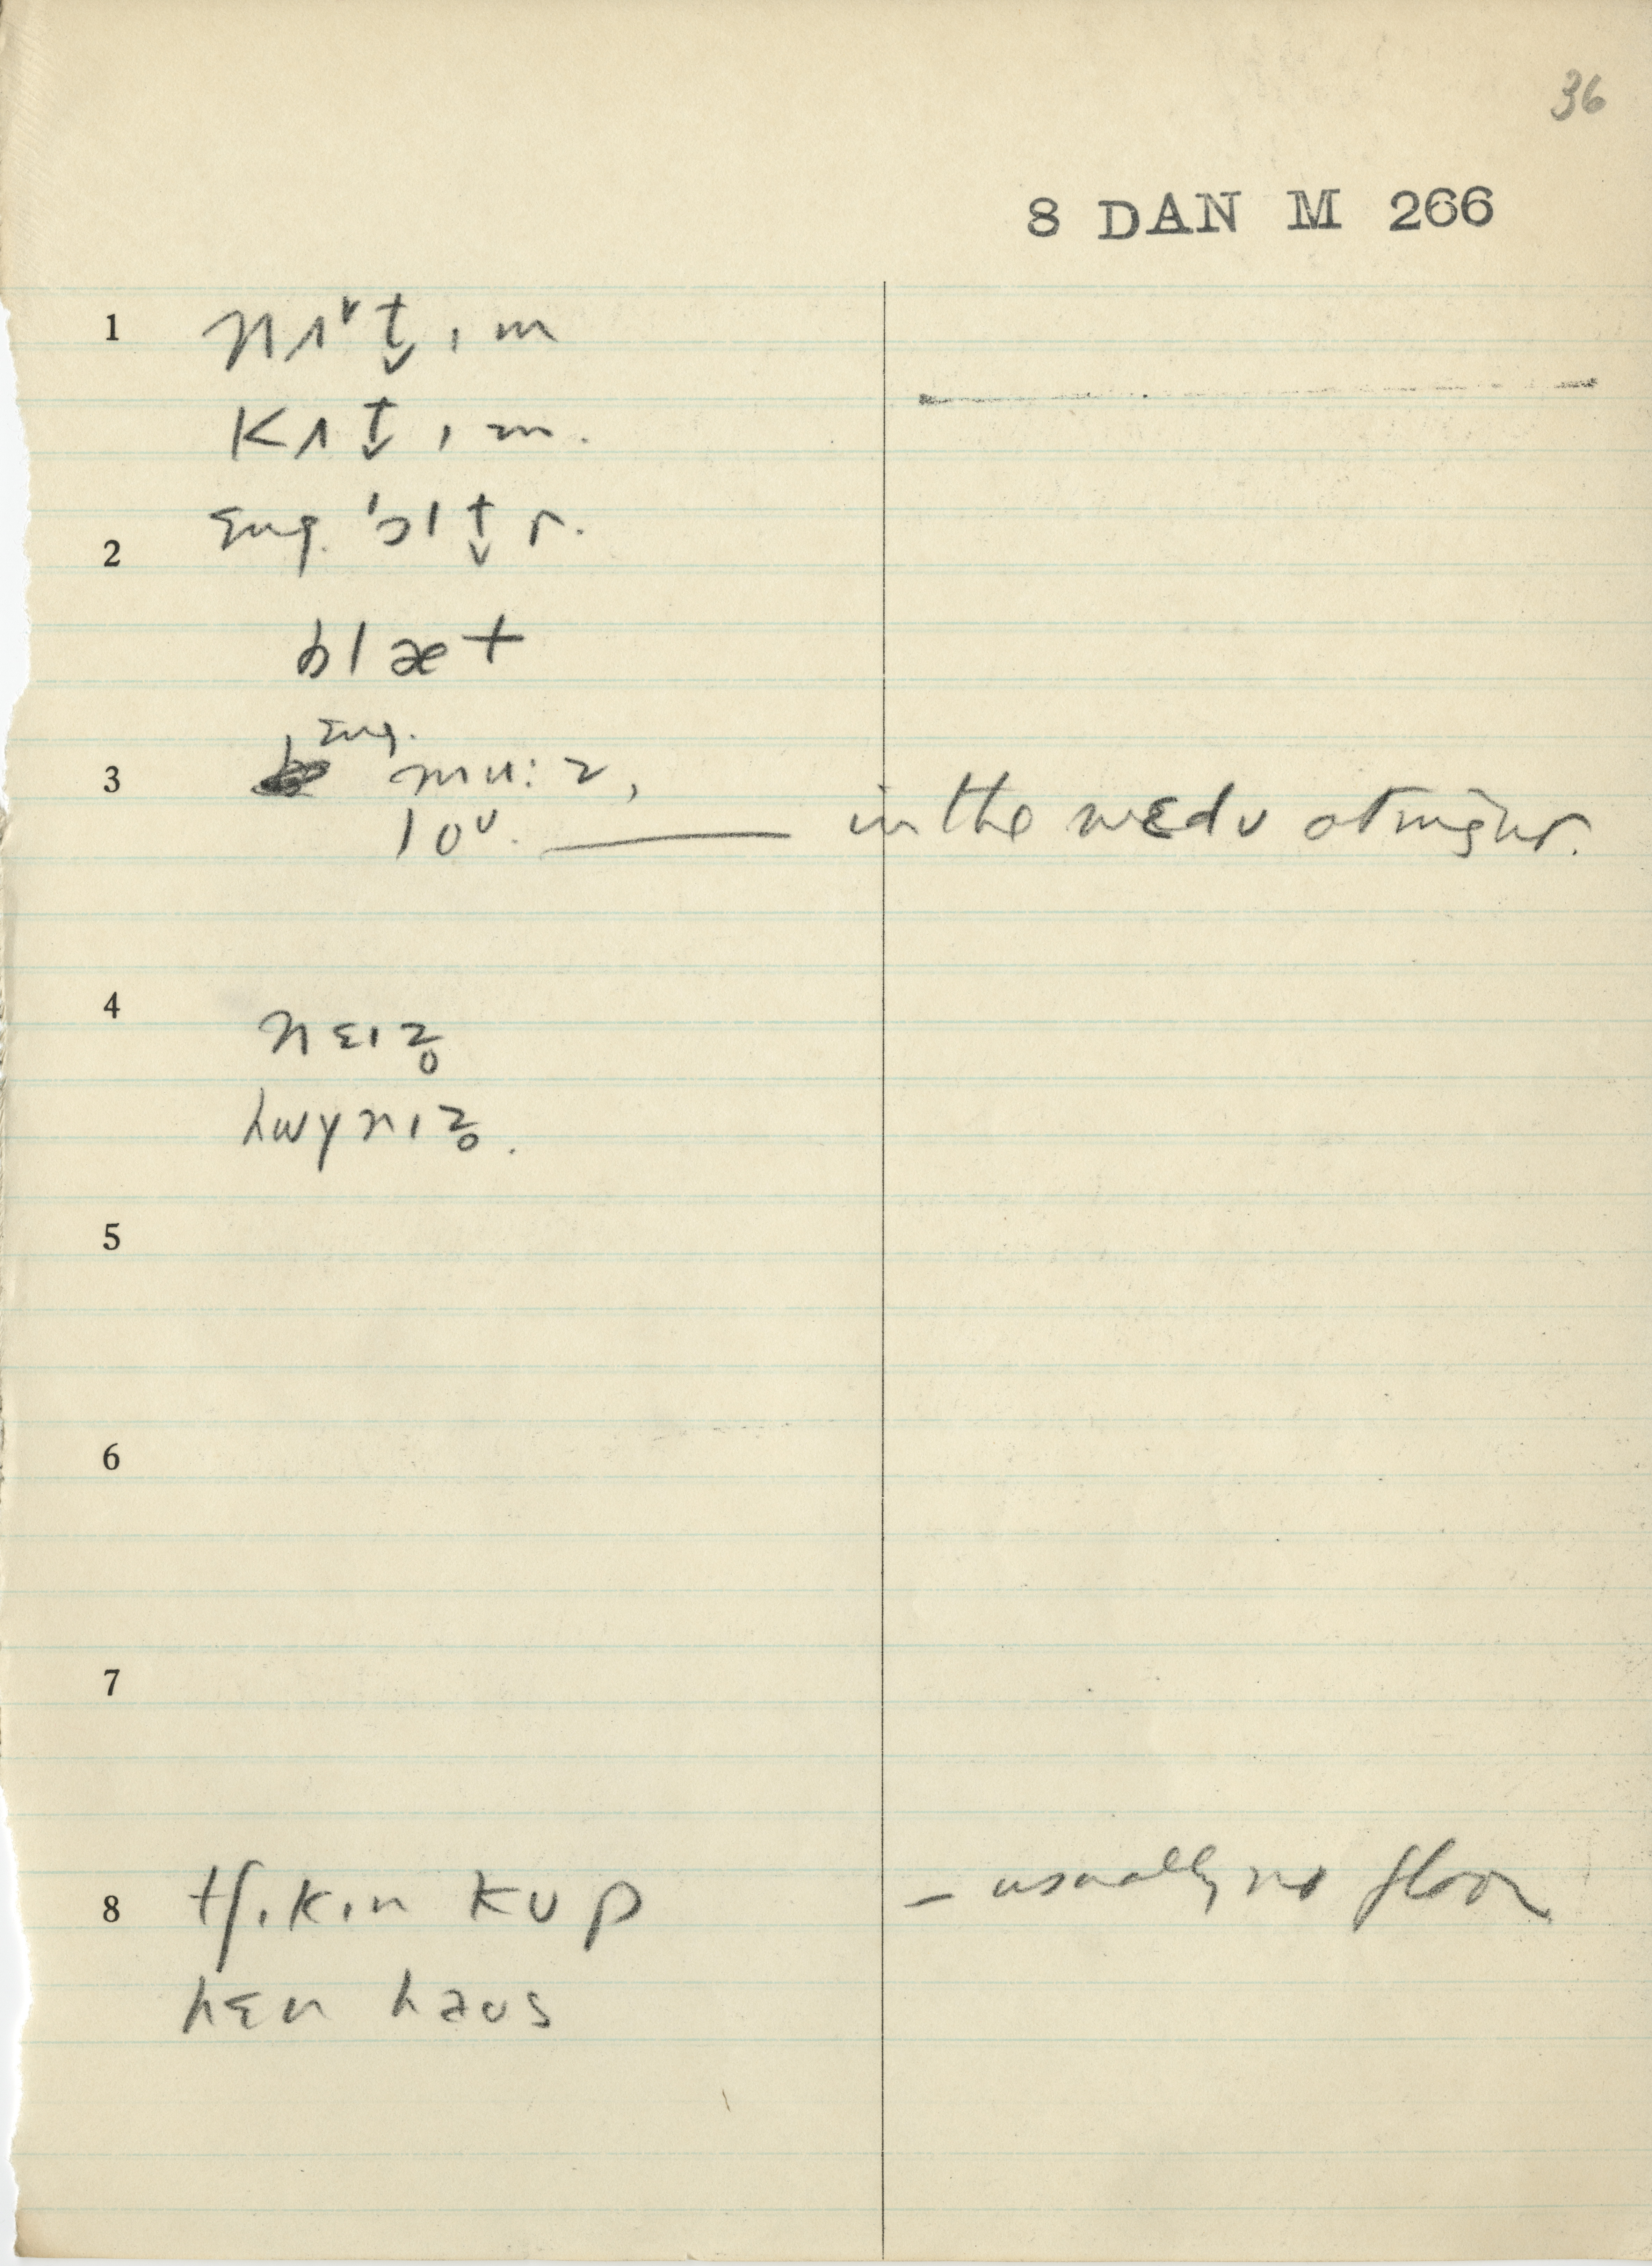 36
8 DAN M 266
1 nʌᵛt̬ɪm
kʌt̬ɪm.
2 Eng. 'bɪt̬r.
blæt
Eng.
3 mu:z,
loʊ. ——— in the mɛdʊ at night.
4 nɛɪz̥
hwɪnɪz̥.
5
6
7
8 tʃɪkɪn kup — usually no floor
hɛn haʊs